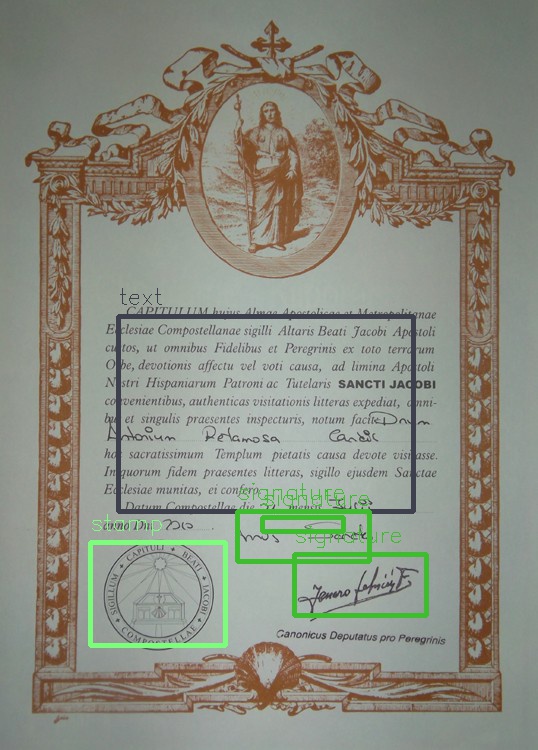 CAPITULUM hujus Almae Apostolicae et Metropolitanae
Ecclesiae Compostellanae sigilli Altaris Beati Jacobi Apostoli
custos, ut omnibus Fidelibus et Peregrinis ex toto terrarum
Orbe, devotionis affectu vel voti causa, ad limina Apostoli
Nostri Hispaniarum Patroni ac Tutelaris SANCTI JACOBI
convenientibus, authenticas visitationis litteras expediat, omni-
bus et singulis praesentes inspecturis, notum facit: Dnum
Antonium Retamosa
hoc sacratissimum Templum pietatis causa devote visitasse.
In quorum fidem praesentes litteras, sigillo ejusdem Sanctae
Ecclesiae munitas, ei confero.
Datum Compostellae die mensis
anno Dni 2010 .
SIGILLUM CAPITULI BEATI JACOBI COMPOSTELLAE
Canonicus Deputatus pro Peregrinis
text
signature
signature
signature
stamp